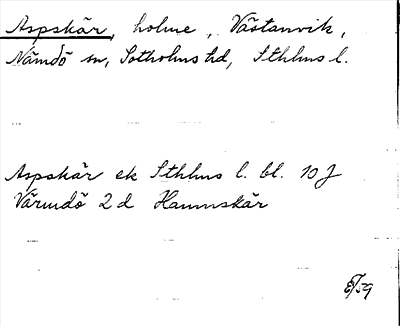 Aspskär, holme, Västanvik,
Nämdö sn, Sotholms hd, Sthlms l.
Aspskär ek Sthlms l. bl. 10 J
Värmdö 2 d Hamnskär
/59